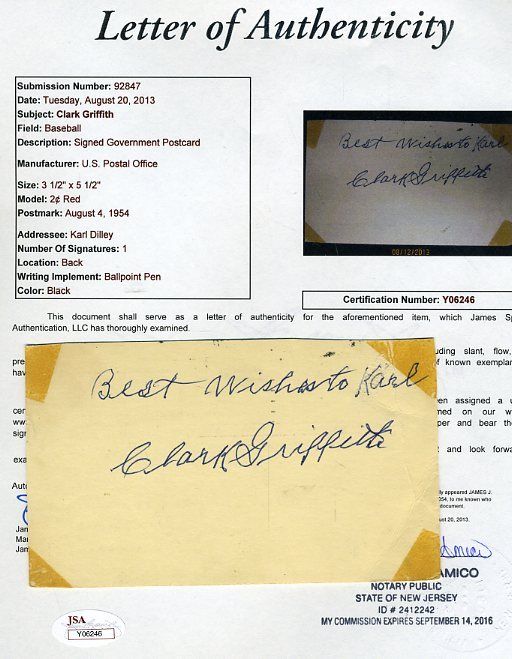 Letter of Authenticity
Submission Number: 92847
Date: Tuesday, August 20, 2013
Subject: Clark Griffith
Field: Baseball
Description: Signed Government Postcard
Manufacturer: U.S. Postal Office
Size: 3 1/2" x 5 1/2"
Model: 2¢ Red
Postmark: August 4, 1954
Addressee: Karl Dilley
Number Of Signatures: 1
Location: Back
Writing Implement: Ballpoint Pen
Color: Black
Best Wishes to Karl
Clark Griffith
08/12/2013
Certification Number: Y06246
This document shall serve as a letter of authenticity for the aforementioned item, which James Sp
Authentication, LLC has thoroughly examined.
uding slant, flow,
pre
f known exemplar
hav
Best Wishes to Karl
Clark Griffith
en assigned a u
cer
med on our w
ww
per and bear the
sign
t and look forwa
exa
Auto
ly appeared JAMES J.
054, to me known who
document.
ust 20, 2013.
Jam
Mar
Jam
AMICO
NOTARY PUBLIC
STATE OF NEW JERSEY
ID # 2412242
MY COMMISSION EXPIRES SEPTEMBER 14, 2016
JSA
Y06246